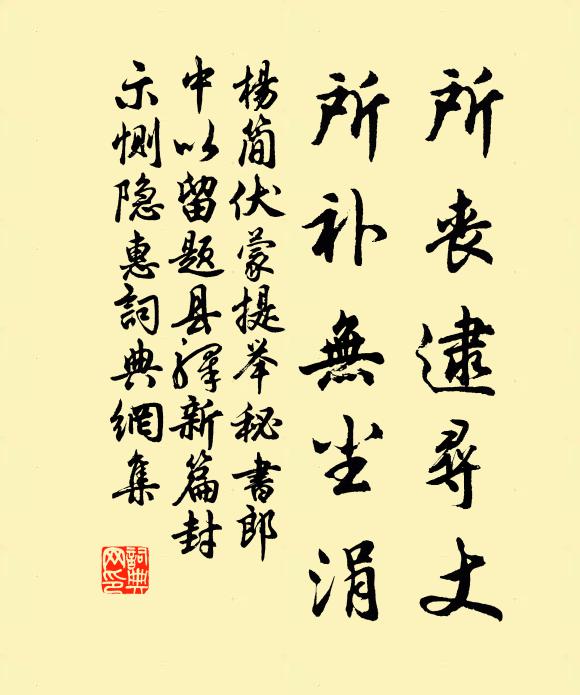 所喪逮尋丈
所补無尘涓
楊简伏蒙提举秘書郎
中以留题县驛新篇封
示恻隐惠詞典網集
詞典网印